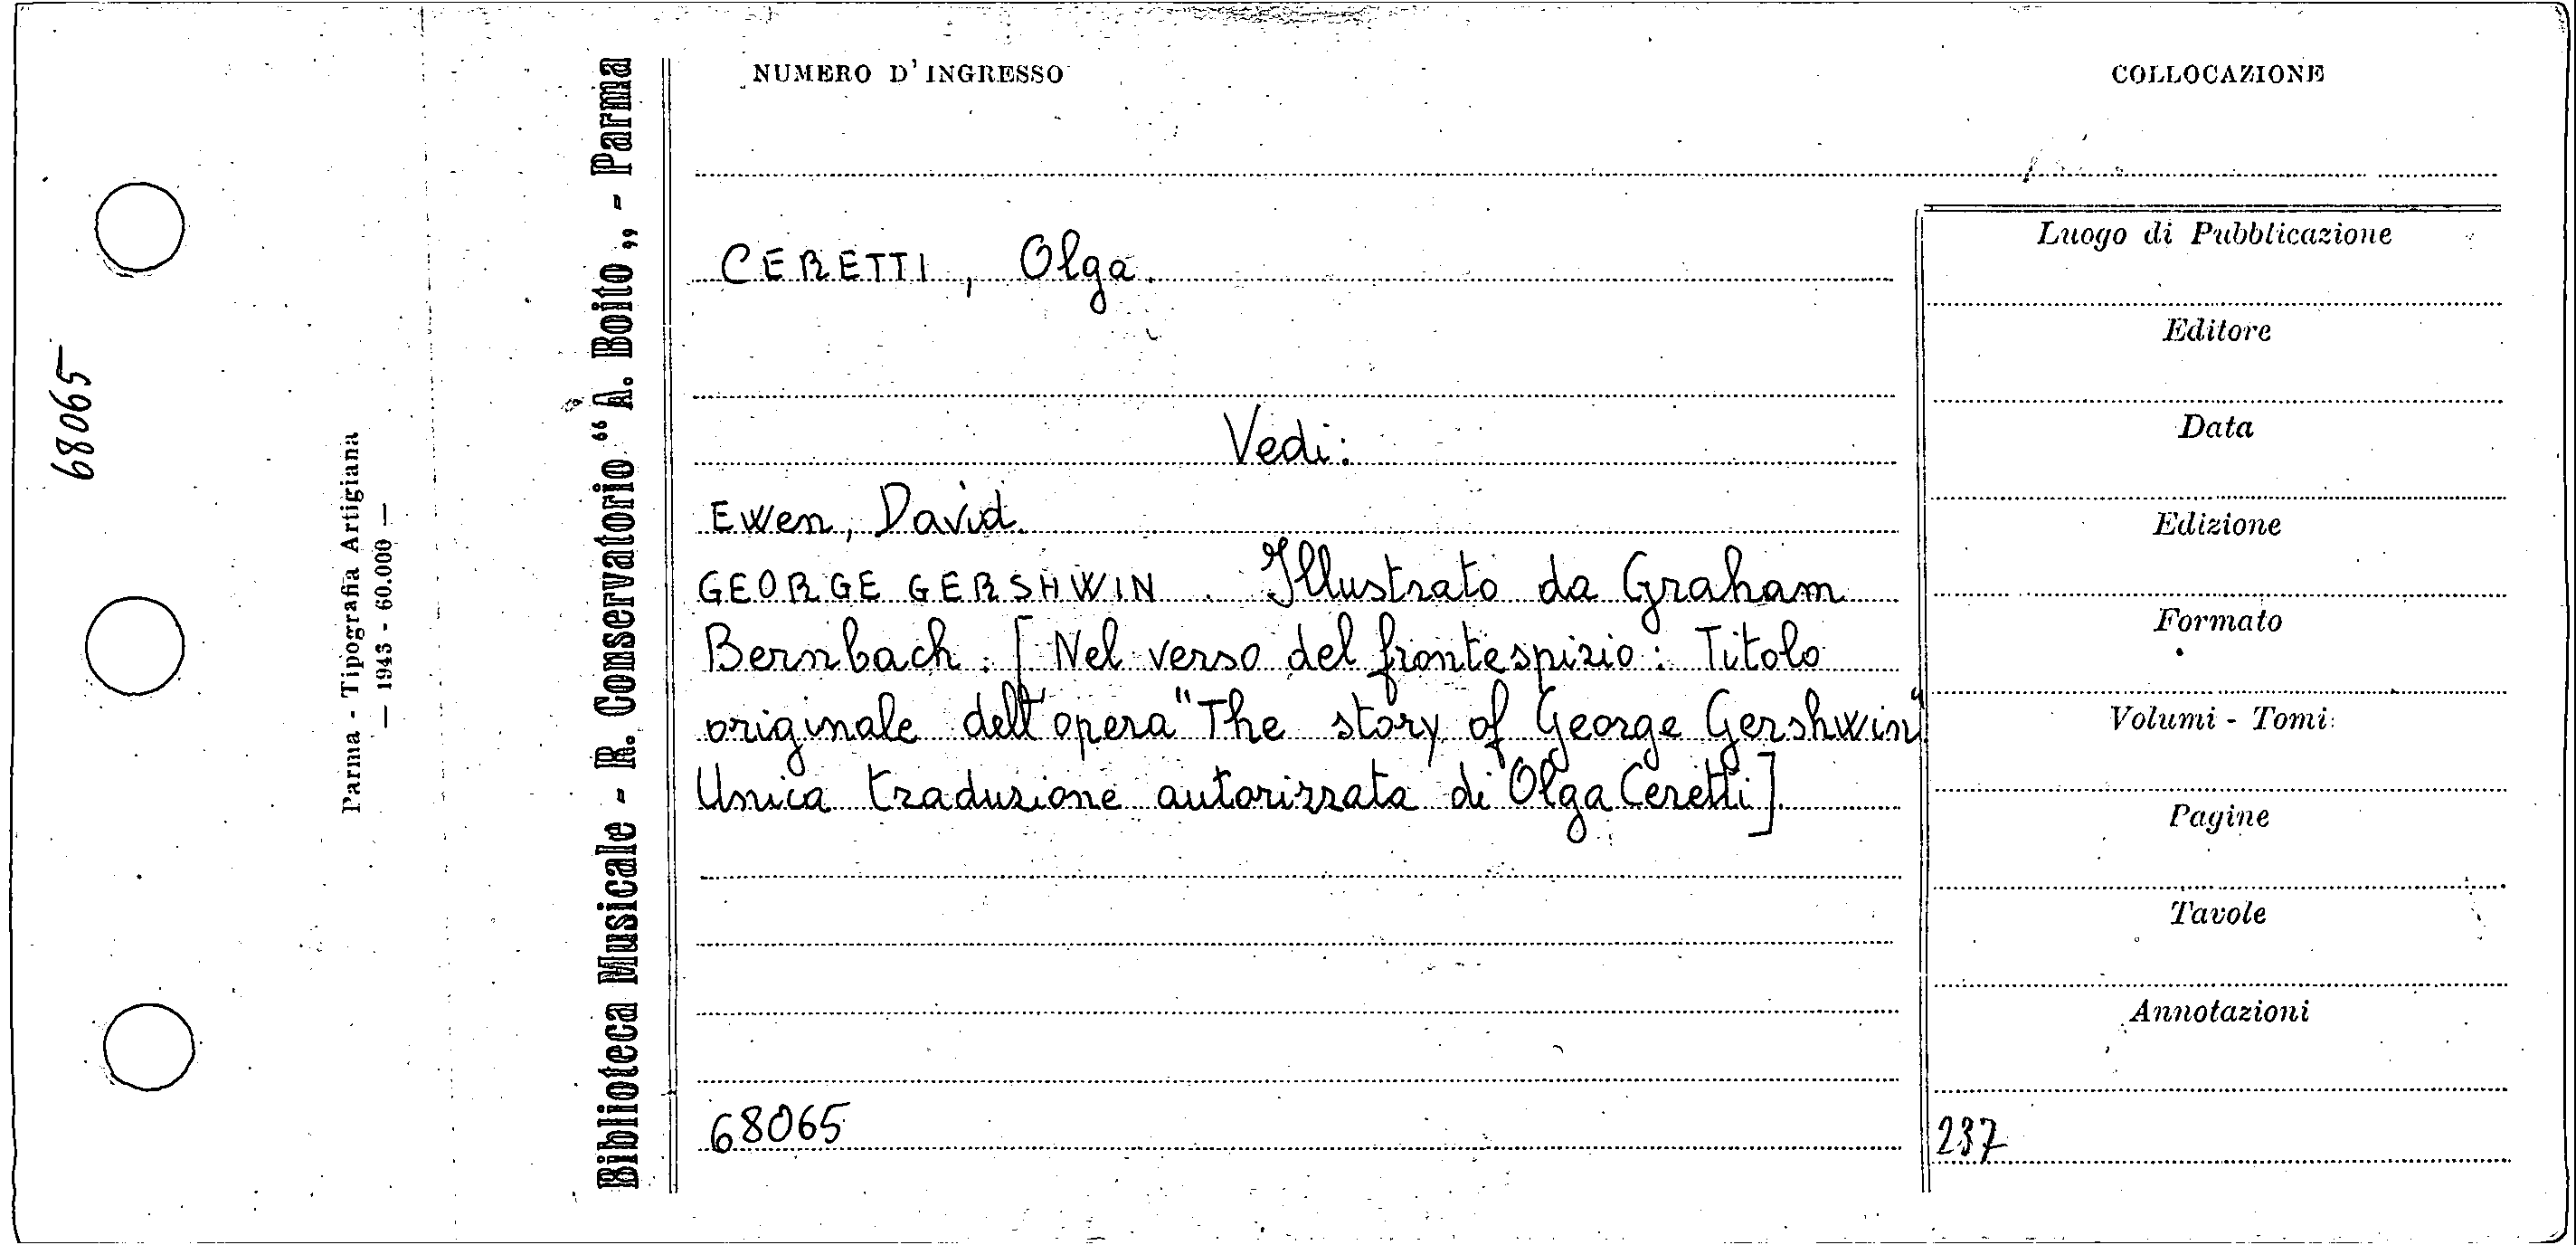 68065
Parma - Tipografia Artigiana
— 1943 - 60.000 —
Biblioteca Musicale - R. Conservatorio “A. Boito„ - Parma
NUMERO D'INGRESSO
COLLOCAZIONE
CERETTI, Olga.
Vedi:
Ewen, David.
GEORGE GERSHWIN. Illustrato da Graham
Bernbach. [Nel verso del frontespizio: Titolo
originale dell'opera "The story of George Gershwin"
Unica traduzione autorizzata di Olga Ceretti].
68065
Luogo di Pubblicazione
Editore
Data
Edizione
Formato
Volumi - Tomi
Pagine
Tavole
Annotazioni
237